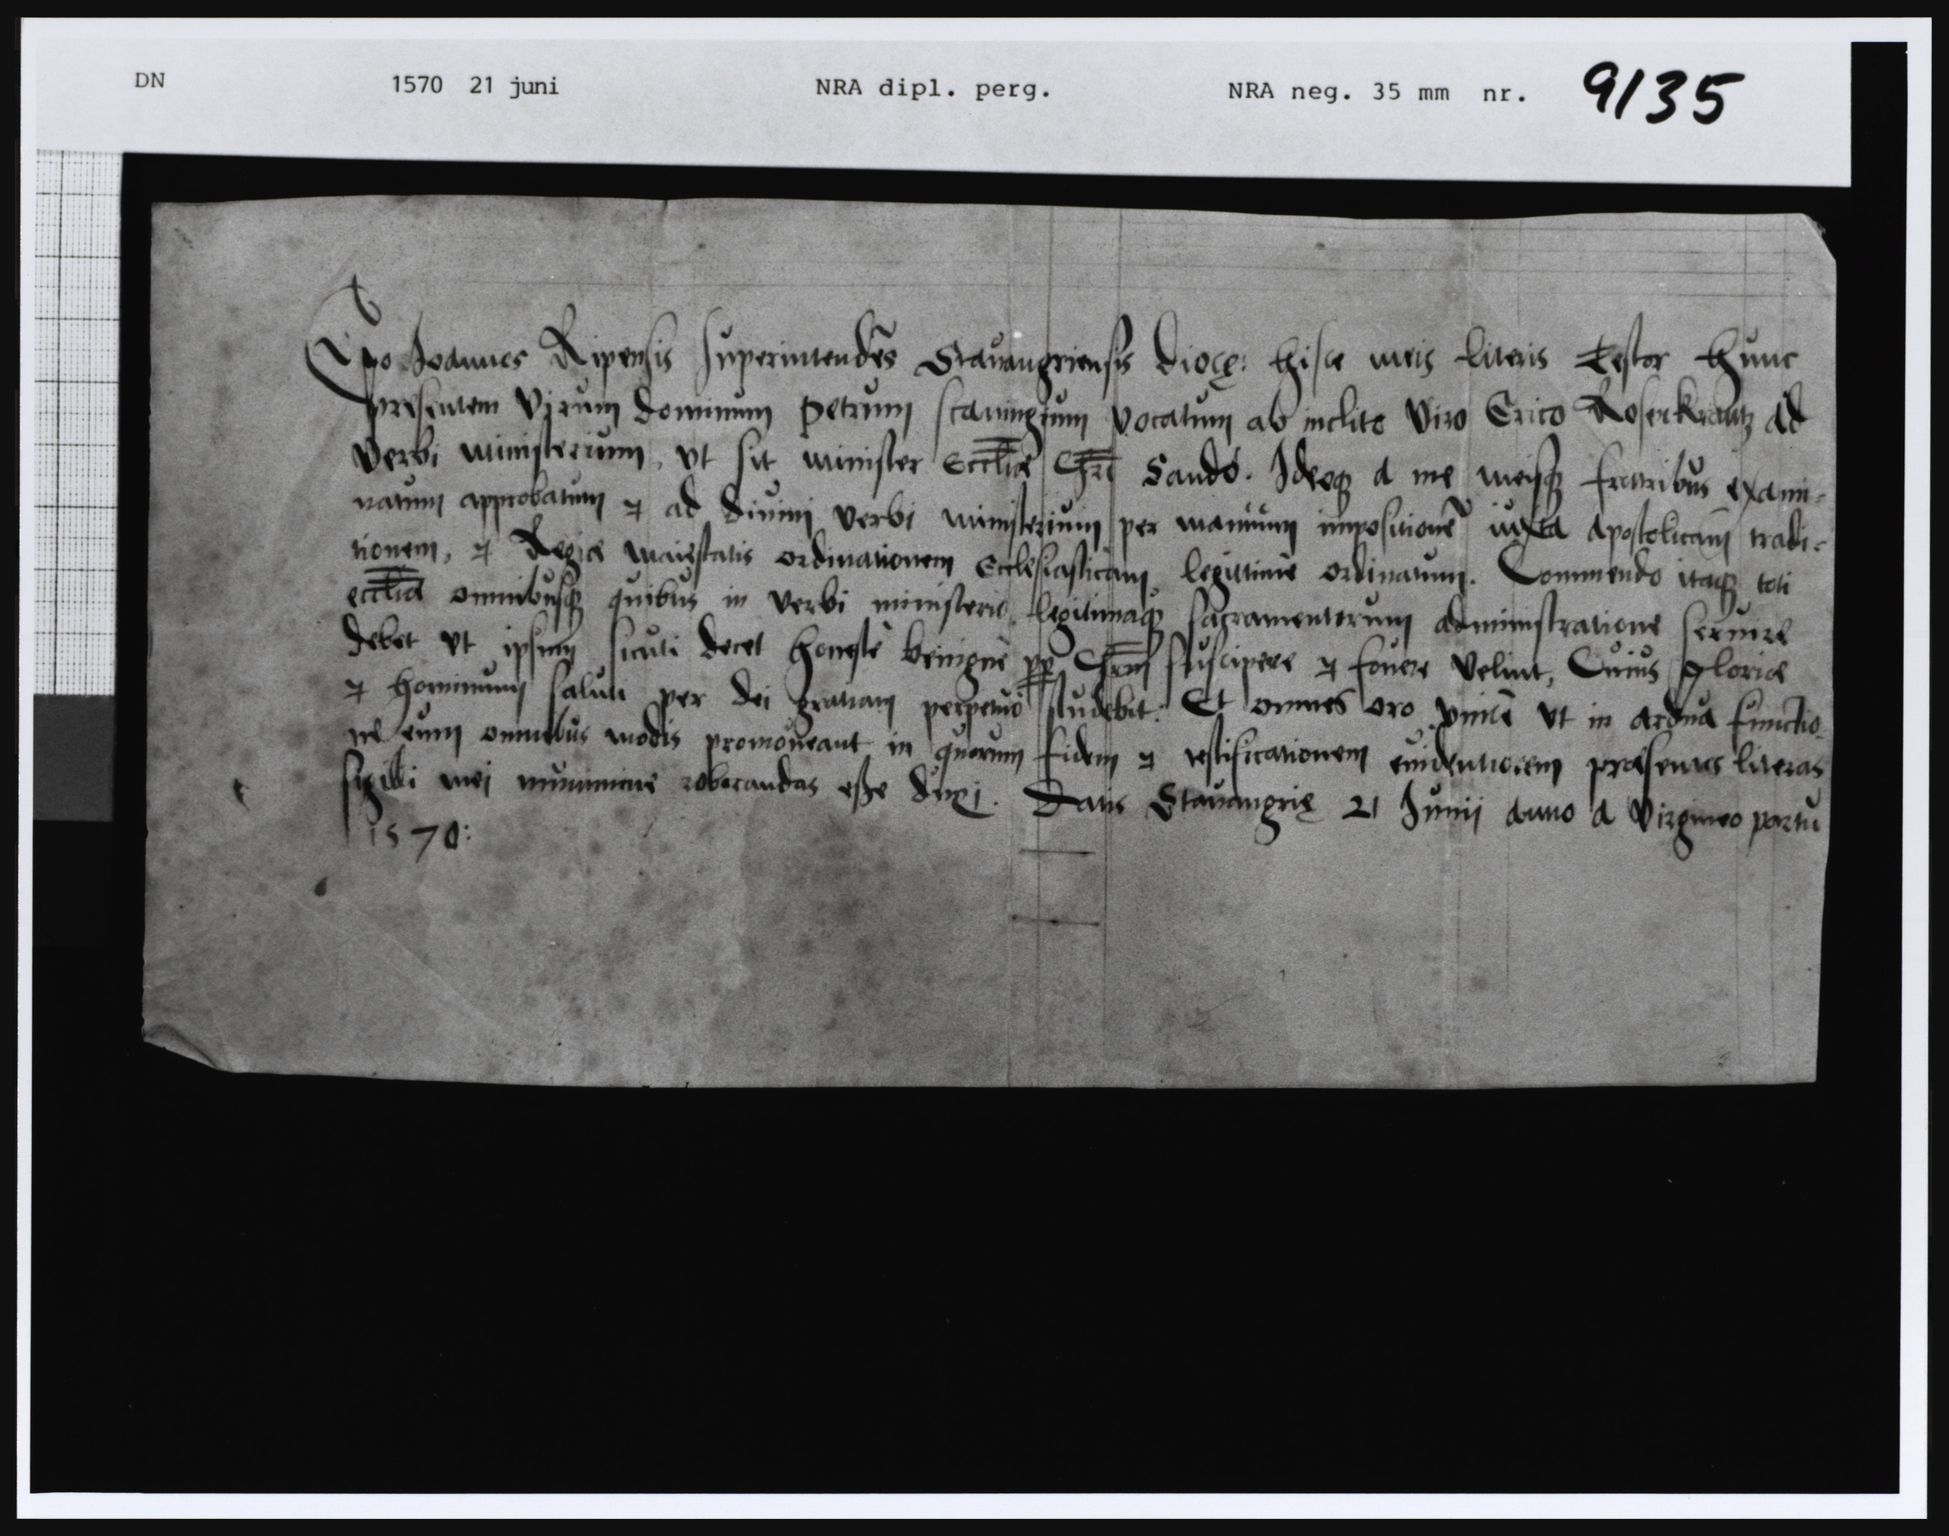 DN 1570 21 juni NRA dipl. perg. NRA neg. 35 mm nr. 9135
Ego Ioannes Ripensis superintendẽs Stauangriensis diocę: hisce meis literis testor hunc
presentem virum dominum petrum scaningium vocatum ab inclito viro Erico Rosenkrantz ad
verbi ministerium, vt sit minister eccliæ Chri Sandö. Ideoqꝫ a me meisqꝫ fratribus exami-
natum approbatum ⁊ ad diuini verbi ministerium per manuum impositionẽ iuxta apostolicam tradi-
tionem, ⁊ Regiæ maiestatis ordinationem Ecclesiasticam legittimè ordinatum. Commendo itaqꝫ toti
eccliæ omnibusqꝫ quibus in verbi ministerio, legitimaqꝫ sacramentorum administratione seruire
debet vt ipsum sicuti decet honestè benignè pp Chrm suscipere ⁊ fouere velint, Cuius gloriæ
⁊ hominum saluti per dei gratiam perpetuò studebit: Et omnes oro vnicè vt in ardua functio-
ne eum omnibus modis promoueant in quorum fidem ⁊ testificationem euidentiorem præsentes literas
sigilli mei munimine roborandas eße duxi. Datis Stauangrię 21 Junij anno a Virgineo partu
1570: